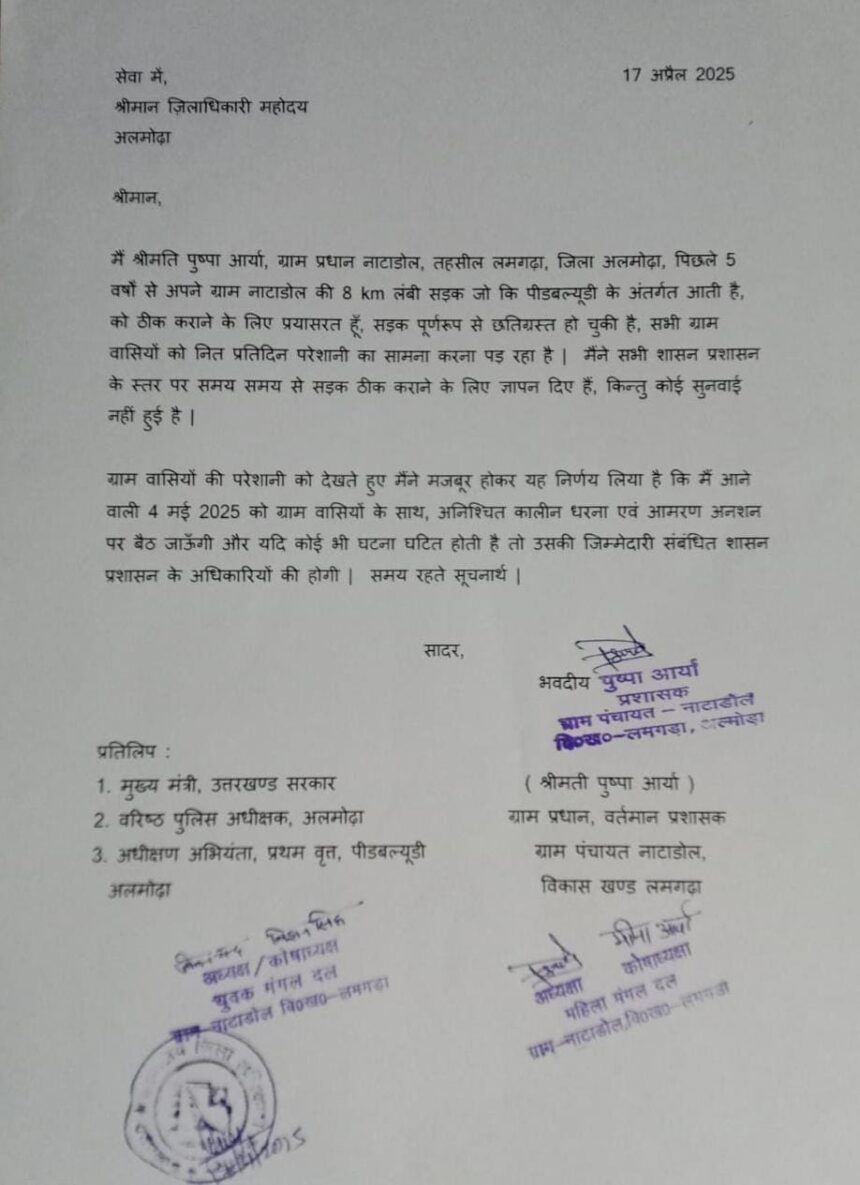 सेवा में,
17 अप्रैल 2025
श्रीमान ज़िलाधिकारी महोदय
अलमोढ़ा
श्रीमान,
मैं श्रीमति पुष्पा आर्या, ग्राम प्रधान नाटाडोल, तहसील लमगढ़ा, जिला अलमोढ़ा, पिछले 5
वर्षो से अपने ग्राम नाटाडोल की 8 km लंबी सड़क जो कि पीडबल्यूडी के अंतर्गत आती है,
को ठीक कराने के लिए प्रयासरत हूँ, सड़क पूर्णरूप से छतिग्रस्त हो चुकी है, सभी ग्राम
वासियों को नित प्रतिदिन परेशानी का सामना करना पड़ रहा है | मैंने सभी शासन प्रशासन
के स्तर पर समय समय से सड़क ठीक कराने के लिए ज्ञापन दिए हैं, किन्तु कोई सुनवाई
नहीं हुई है |
ग्राम वासियों की परेशानी को देखते हुए मैंने मजबूर होकर यह निर्णय लिया है कि मैं आने
वाली 4 मई 2025 को ग्राम वासियों के साथ, अनिश्चित कालीन धरना एवं आमरण अनशन
पर बैठ जाऊँगी और यदि कोई भी घटना घटित होती है तो उसकी जिम्मेदारी संबंधित शासन
प्रशासन के अधिकारियों की होगी | समय रहते सूचनार्थ |
सादर,
भवदीय पुष्पा आर्या
प्रशासक
ग्राम पंचायत – नाटाडोल
वि०ख०–लमगड़ा, अल्मोड़ा
प्रतिलिप :
1. मुख्य मंत्री, उत्तरखण्ड सरकार
2. वरिष्ठ पुलिस अधीक्षक, अलमोढ़ा
3. अधीक्षण अभियंता, प्रथम वृत्त, पीडबल्यूडी
अलमोढ़ा
( श्रीमती पुष्पा आर्या )
ग्राम प्रधान, वर्तमान प्रशासक
ग्राम पंचायत नाटाडोल,
विकास खण्ड लमगढ़ा
अध्यक्ष / कोषाध्यक्ष
युवक मंगल दल
ग्राम–नाटाडोल वि०ख०–लमगड़ा
गीमा आर्या
अध्यक्षा कोषाध्यक्षा
महिला मंगल दल
ग्राम–नाटाडोल,वि०ख०–लमगड़ा